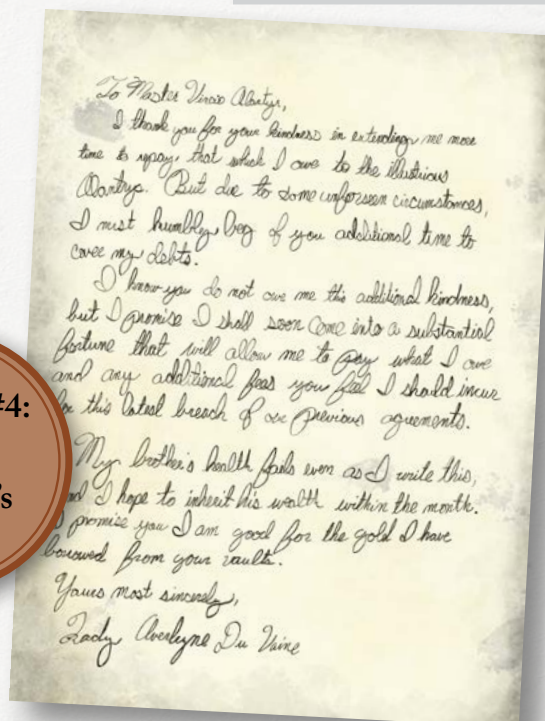 To Master Virxio Alantyr,
I thank you for your kindness in extending me more
time to repay that which I owe to the illustrious
Alantrys. But due to some unforseen circumstances,
I must humbly beg of you additional time to
cover my debts.
I know you do not owe me this additional kindness,
but I promise I shall soon come into a substantial
fortune that will allow me to pay what I owe
and any additional fees you feel I should incur
for this latest breach of our previous agreements.
#4:
's
My brother's health fails even as I write this,
and I hope to inherit his wealth within the month.
I promise you I am good for the gold I have
borrowed from your vaults.
Yours most sincerely,
Lady Averlyne Du Vaine